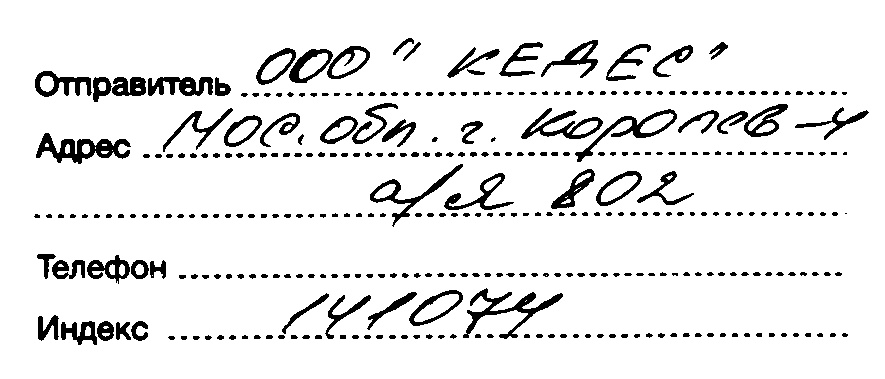 Отправитель ООО "КЕДЕС"
Адрес Мос. обл. г. Королев-4
а/я 802
Телефон
Индекс 141074